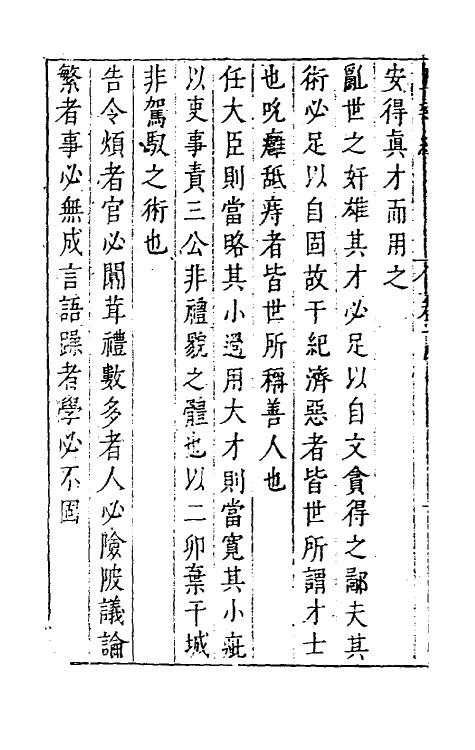 安得眞才而用之
亂世之奸雄其才必足以自文貪得之鄙夫其
術必足以自固故干紀濟惡者皆世所謂才士
也吮癰舐痔者皆世所稱善人也
任大臣則當略其小過用大才則當寬其小疵
以吏事責三公非禮貌之體也以二卵棄干城
非駕馭之術也
告令煩者官必闒茸禮數多者人必險陂議論
繁者事必無成言語躁者學必不固